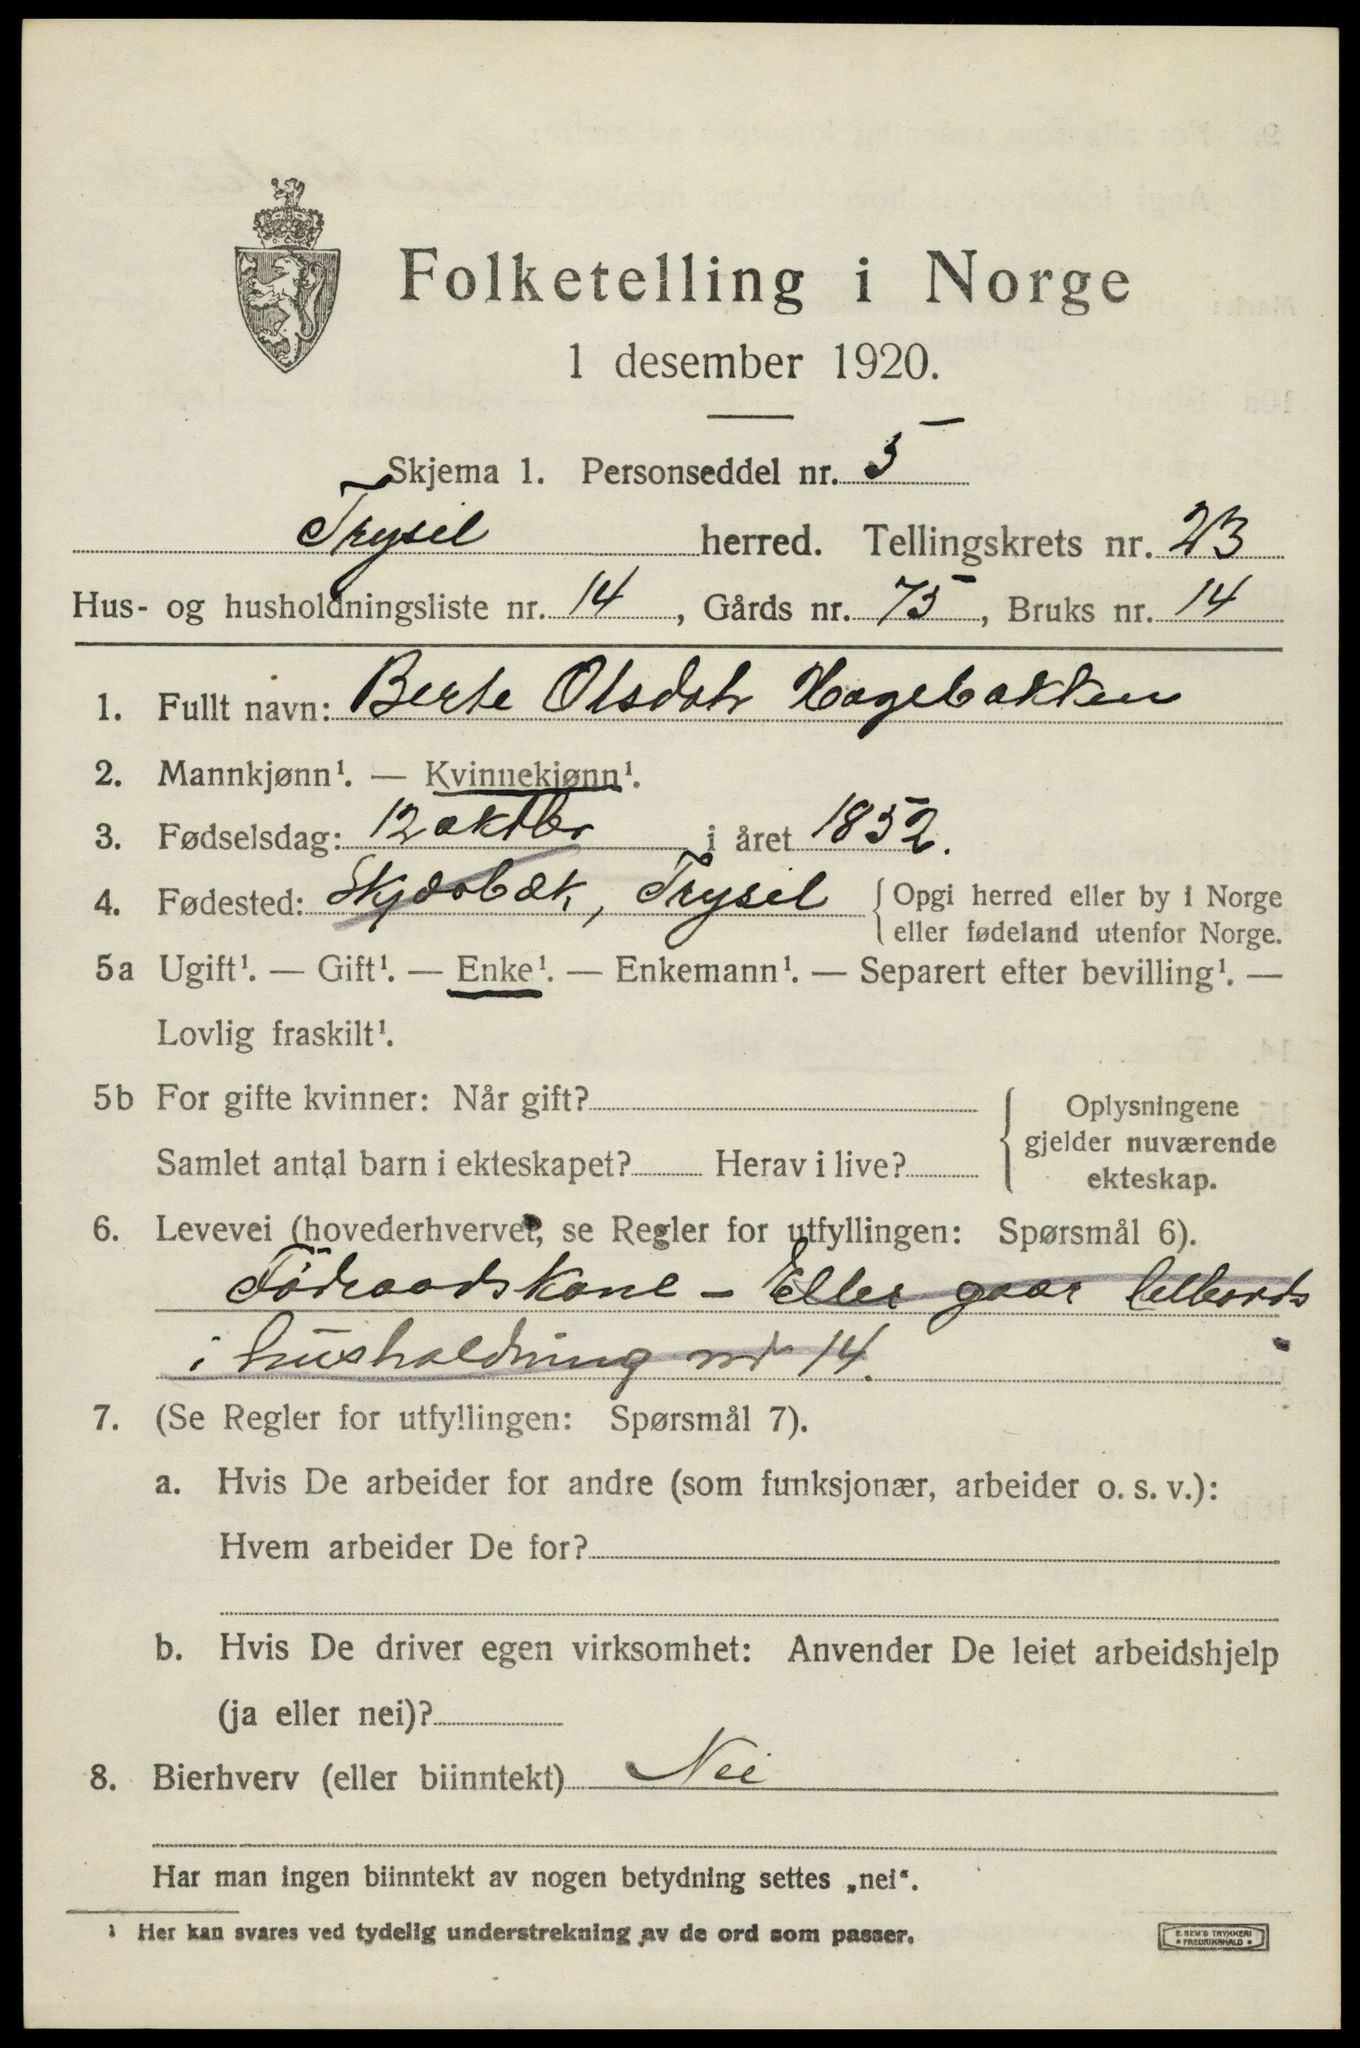 Folketelling i Norge
1 desember 1920.
Skjema 1. Personseddel nr. 5
Trysil herred. Tellingskrets nr. 23
Hus- og husholdningsliste nr. 14, Gårds nr. 75, Bruks nr. 14
1. Fullt navn: Berte Olsdotr Hagebakken
2. Mannkjønn¹. — Kvinnekjønn¹.
3. Fødselsdag: 12 oktbr i året 1852.
4. Fødested: Skjærbæk, Trysil { Opgi herred eller by i Norge
eller fødeland utenfor Norge.
5a Ugift¹. — Gift¹. — Enke¹. — Enkemann¹. — Separert efter bevilling¹. —
Lovlig fraskilt¹.
5b For gifte kvinner: Når gift?
Samlet antal barn i ekteskapet? Herav i live?
Oplysningene
gjelder nuværende
ekteskap.
6. Levevei (hovederhvervet, se Regler for utfyllingen: Spørsmål 6).
Födraadskone - Eller gaar tilbords
i husholdning nr 14.
7. (Se Regler for utfyllingen: Spørsmål 7).
a. Hvis De arbeider for andre (som funksjonær, arbeider o. s. v.):
Hvem arbeider De for?
b. Hvis De driver egen virksomhet: Anvender De leiet arbeidshjelp
(ja eller nei)?
8. Bierhverv (eller biinntekt) Nei
Har man ingen biinntekt av nogen betydning settes „nei“.
¹ Her kan svares ved tydelig understrekning av de ord som passer.
E. SEM'S TRYKKERI
• FREDRIKSHALD •